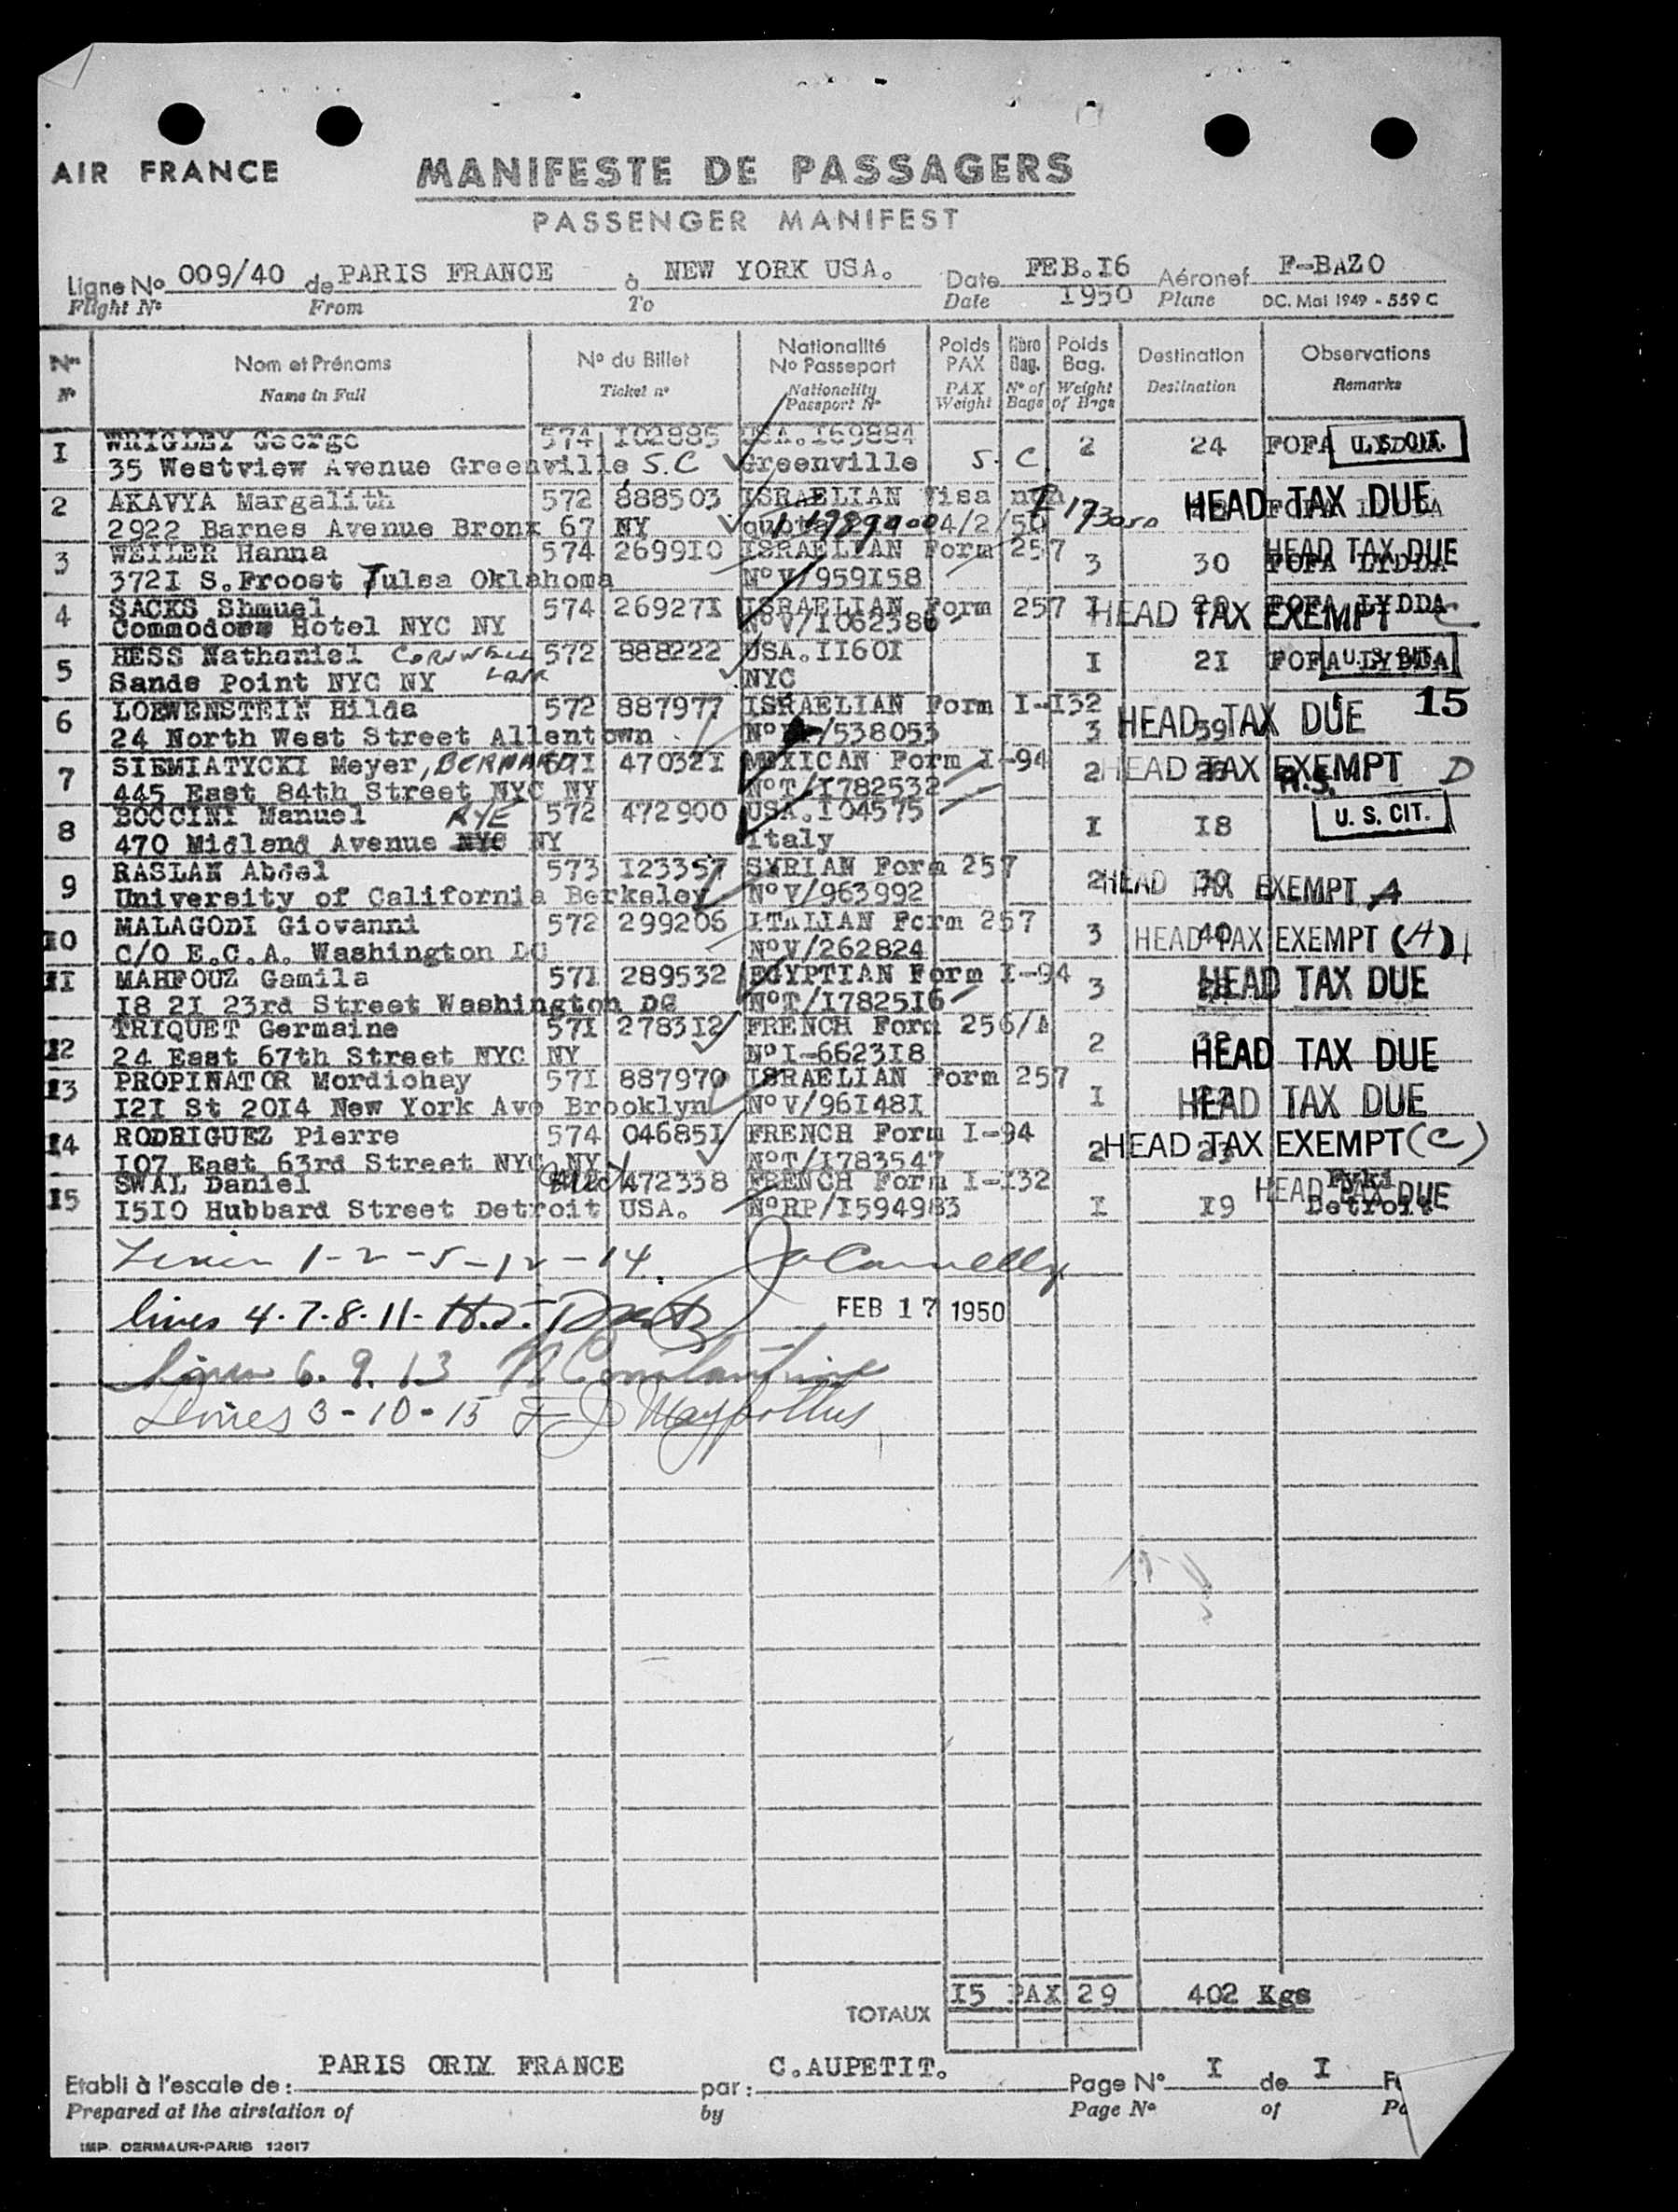 AIR FRANCE
MANIFESTE DE PASSAGERS
PASSENGER MANIFEST
Ligne No 009/40 de PARIS FRANCE à NEW YORK USA. Date FEB.I6 Aéronef F-BAZO
Flight No From To Date I950 Plane DC. Mai 1949 - 559 C
Nos Nom et Prénoms No du Billet Nationalité No Passeport Poids PAX Nbre Bag. Poids Bag. Destination Observations
No Name in Full Ticket no Nationality Passport No PAX Weight No of Bags Weight of Bags Destination Remarks
I WRIGLEY George 574 I02885 USA.I69884 2 24 FOFA LYDDA U.S. CIT.
35 Westview Avenue Greenville S.C Greenville S. C
2 AKAVYA Margalith 572 888503 ISRAELIAN Visa non HEAD TAX DUE
2922 Barnes Avenue Bronx 67 NY quota 4/2/50
3 WEILER Hanna 574 2699I0 ISRAELIAN Form 257 3 30 FOFA LYDDA HEAD TAX DUE
372I S.Froost Tulsa Oklahoma NoV/959I58
4 SACKS Shmuel 574 26927I ISRAELIAN Form 257 I FOFA LYDDA HEAD TAX EXEMPT C
Commodore Hotel NYC NY NoV/I062386
5 HESS Nathaniel CORNWELL 572 888222 USA.II60I I 2I FOFA LYDDA U.S. CIT.
Sands Point NYC NY NYC
6 LOEWENSTEIN Hilda 572 887977 ISRAELIAN Form I-I32 3 59 HEAD TAX DUE 15
24 North West Street Allentown No /538053
7 SIEMIATYCKI Meyer, BERNARD 57I 47032I MEXICAN Form I-94 2 HEAD TAX EXEMPT D
445 East 84th Street NYC NY NoT/I782532 R.S.
8 BOCCINI Manuel RYE 572 472900 USA.I04575 I I8 U. S. CIT.
470 Midland Avenue NYC NY Italy
9 RASLAN Abdel 573 I23357 SYRIAN Form 257 2 30 HEAD TAX EXEMPT A
University of California Berkeley NoV/963992
I0 MALAGODI Giovanni 572 299206 ITALIAN Form 257 3 40 HEAD TAX EXEMPT (A)
C/O E.C.A. Washington DC NoV/262824
II MAHFOUZ Gamila 57I 289532 EGYPTIAN Form I-94 3 HEAD TAX DUE
I8 2I 23rd Street Washington DC NoT/I7825I6
I2 TRIQUET Germaine 57I 2783I2 FRENCH Form 256/A 2 HEAD TAX DUE
24 East 67th Street NYC NY NoI-6623I8
I3 PROPINATOR Mordichay 57I 887970 ISRAELIAN Form 257 I HEAD TAX DUE
I2I St 20I4 New York Ave Brooklyn NoV/96I48I
I4 RODRIGUEZ Pierre 574 04685I FRENCH Form I-94 2 HEAD TAX EXEMPT (C)
I07 East 63rd Street NYC NY NoT/I783547
I5 SWAL Daniel 472338 FRENCH Form I-I32 I I9 HEAD TAX DUE
I5I0 Hubbard Street Detroit USA. NoRP/I594983 Detroit
Lines 1-2-5-12-14.
lines 4.7.8.11- FEB 17 1950
lines 6. 9. 13
Lines 3-10-15
TOTAUX I5 PAX 29 402 Kgs
Etabli à l'escale de: PARIS ORLY FRANCE par: C.AUPETIT. Page No I de I
Prepared at the airstation of by Page No of
IMP. DERMAUR-PARIS 12617